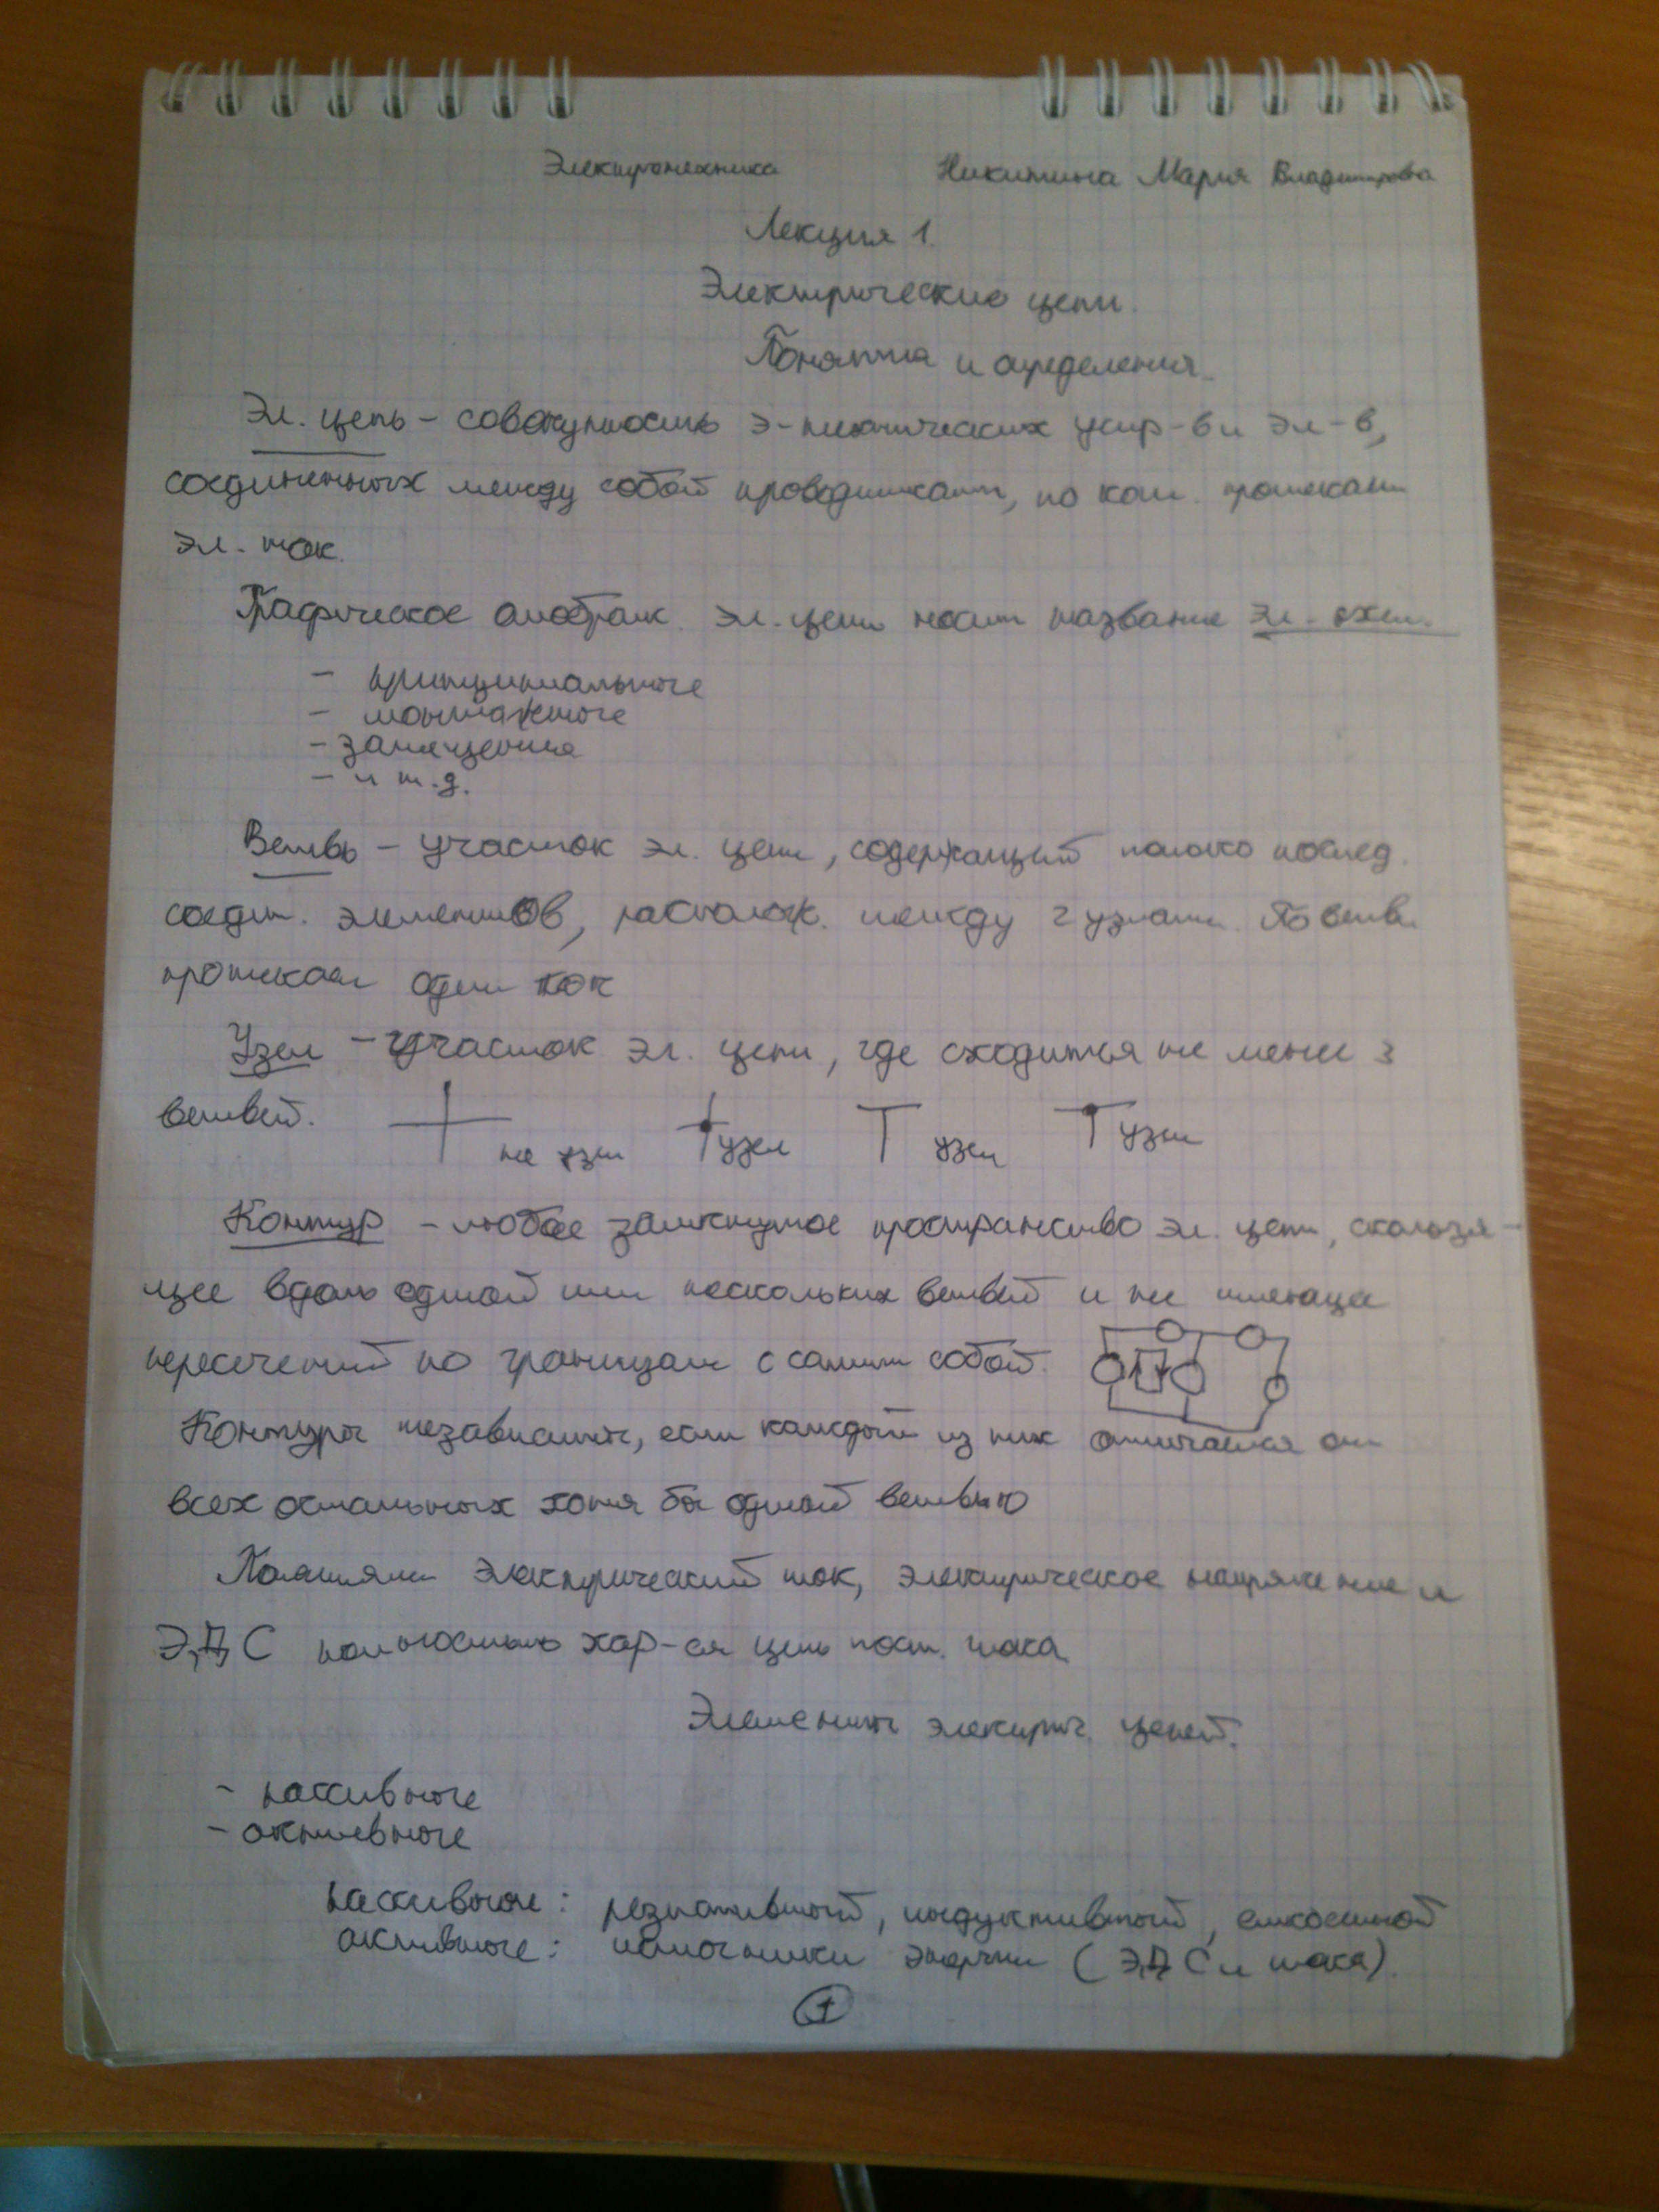 Электротехника Никитина Мария Владимировна
Лекция 1.
Электрические цепи.
Понятия и определения.
Эл. цепь – совокупность устр-в и эл-в,
соединенных между собой проводниками, по кот. протекает
эл. ток.
Графическое изображ. эл. цепи носит название эл. схем.
– принципиальные
– монтажные
– замещения
– и т.д.
Ветвь – участок эл. цепи, содержащий только послед.
соедин. элементов, располож. между 2 узлами. По ветви
протекает один ток
Узел – участок эл. цепи, где сходится не менее 3
ветвей. не узел узел узел узел
Контур – любое замкнутое пространство эл. цепи, скользя-
щее вдоль одной или нескольких ветвей и не имеющее
пересечений по границам с самим собой.
Контуры независимы, если каждый из них отличается от
всех остальных хотя бы одной ветвью
Понятиями электрический ток, электрическое напряжение и
ЭДС полностью хар-ся цепь пост. тока
Элементы электрич. цепей.
– пассивные
– активные
пассивные: резистивный, индуктивный, емкостной
активные: источники энергии (ЭДС и тока).
1